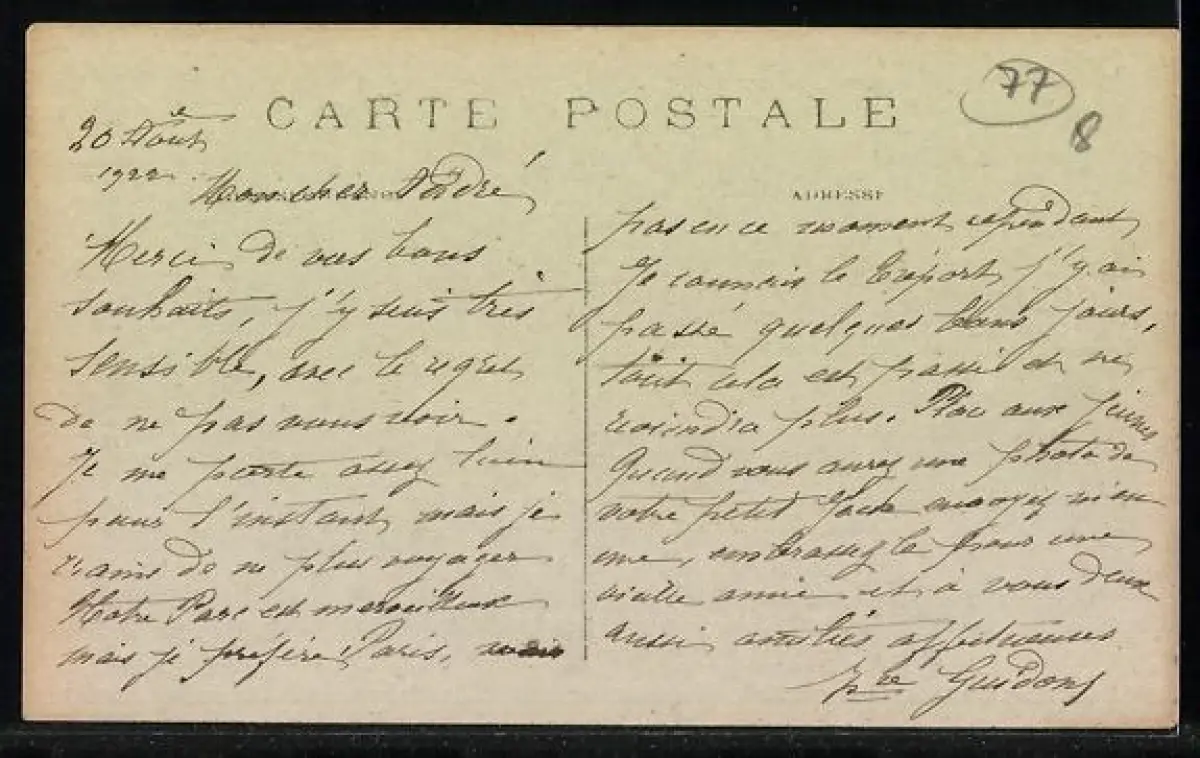 CARTE POSTALE
77
8
20 Août
1922.
Mon cher André
ADRESSE
Merci de vos bons
souhaits, j'y suis très
sensible, avec le regret
de ne pas vous voir.
Je me porte assez bien
pour l'instant, mais je
crains de ne plus voyager
Notre Parc est merveilleux
mais je préfère Paris,
pas en ce moment cependant
Je connais le Tréport, j'y ai
passé quelques bons jours,
tout cela est passé et ne
reviendra plus. Place aux jeunes
Quand vous aurez une photo de
votre petit Jack envoyez m'en
une, embrassez le pour une
vieille amie et à vous deux
aussi amitiés affectueuses
Guidon